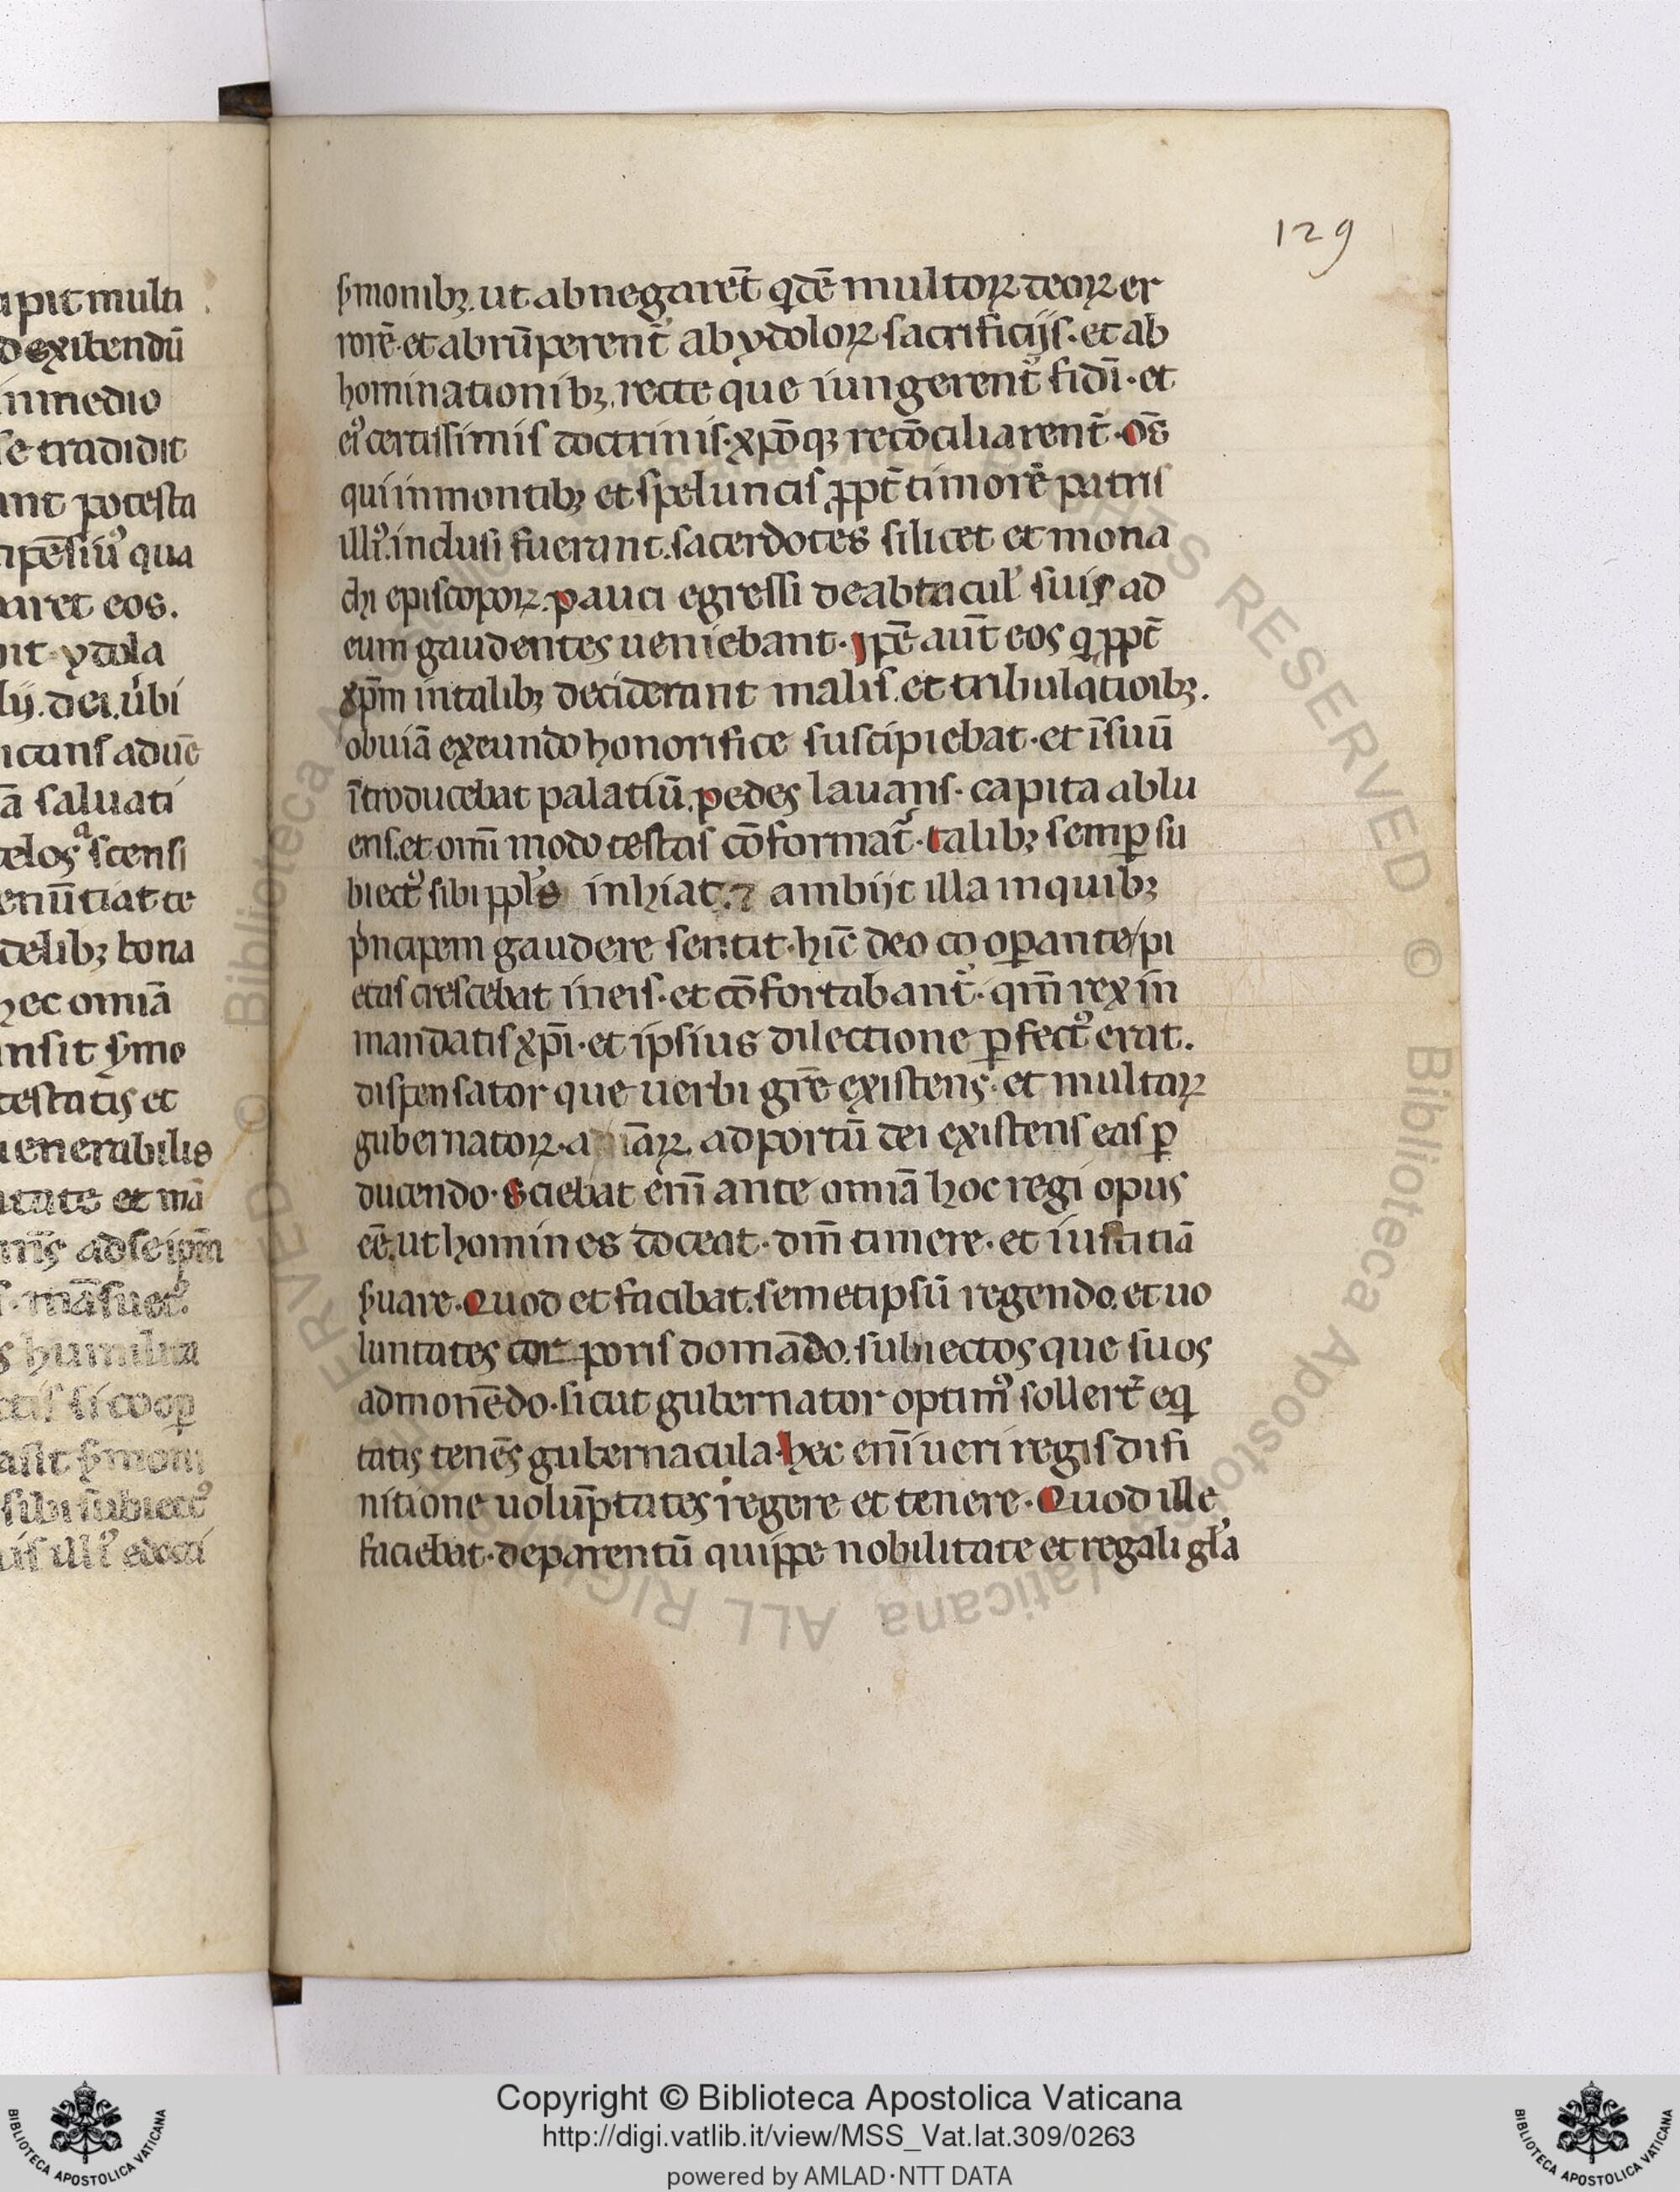 129
apit multi
d exibendū
in medio
se tradidit
ant potesta
aret eos.
ydola
lij. dei. ubi
icans aduē
ā saluati
enūtiat te
delibꝫ bona
hec omīa
nsit s̄mo
testatis et
uenerabilis
itate et mā
ad seip̄m
mā̄suetꝰ
humilita
si coop̱
s̄moni
sibi subiectꝰ
s̄monibꝫ. ut abnegarēt qdē multoꝝ deoꝝ er
rorē. et abrūperent̄ ab ydoloꝝ sacrificijs. et ab
hominationibꝫ. recte que iungerent̄ fidī. et
eiꝰ certissimis doctrinis. xp̄oqꝫ recōciliarent̄. Oēs
qui in montibꝫ et speluncis ꝓpt̄ timorē patris
illiꝰ. inclusi fuerant. sacerdotes silicet et mona
chi episcopoꝝ. pauci egressi de abtacul' suis ad
eum gaudentes ueniebant. Ip̄e aut̄ eos q ꝓpt̄
xp̄m in talibꝫ deciderant malis. et tribulatioībꝫ.
obuiā exeundo honorifice suscipiebat. et ī suū
ītroducebat palatiū. pedes lauans. capita ablu
ens. et om̄i modo testas cōformat̄. talibꝫ semꝑ su
biectꝰ sibi ppl's inhiat. ⁊ ambijt illa in quibꝫ
p̄ncipem gaudere sentit. hīc deo co oꝑante / pi
etas crescebat in eis. et cōfortabant̄. qm̄ rex in
mandatis xp̄i. et ipsius dilectione ꝑfectꝰ erat.
dispensator que uerbi gr̄e existens. et multaꝝ
gubernatoꝝ. aniāꝝ. ad portū dei existens eas ꝑ
ducendo. Sciebat enī ante omīa hoc regi opus
eē. ut homines doceat. dm̄ timere. et iustitiā
s̄uare. Quod et facibat. semetipsū regendo. et uo
luntates cor poris domādo. subiectos que suos
admonēdo. sicut gubernator optimꝰ sollert̄ eq
tatis tenēs gubernacula. hec enī ueri regis difi
nitione uolūptates regere et tenere. Quod ille
faciebat. de parentū quippe nobilitate et regali gl'a
Copyright © Biblioteca Apostolica Vaticana
http://digi.vatlib.it/view/MSS_Vat.lat.309/0263
powered by AMLAD·NTT DATA
BIBLIOTECA APOSTOLICA VATICANA
BIBLIOTECA APOSTOLICA VATICANA